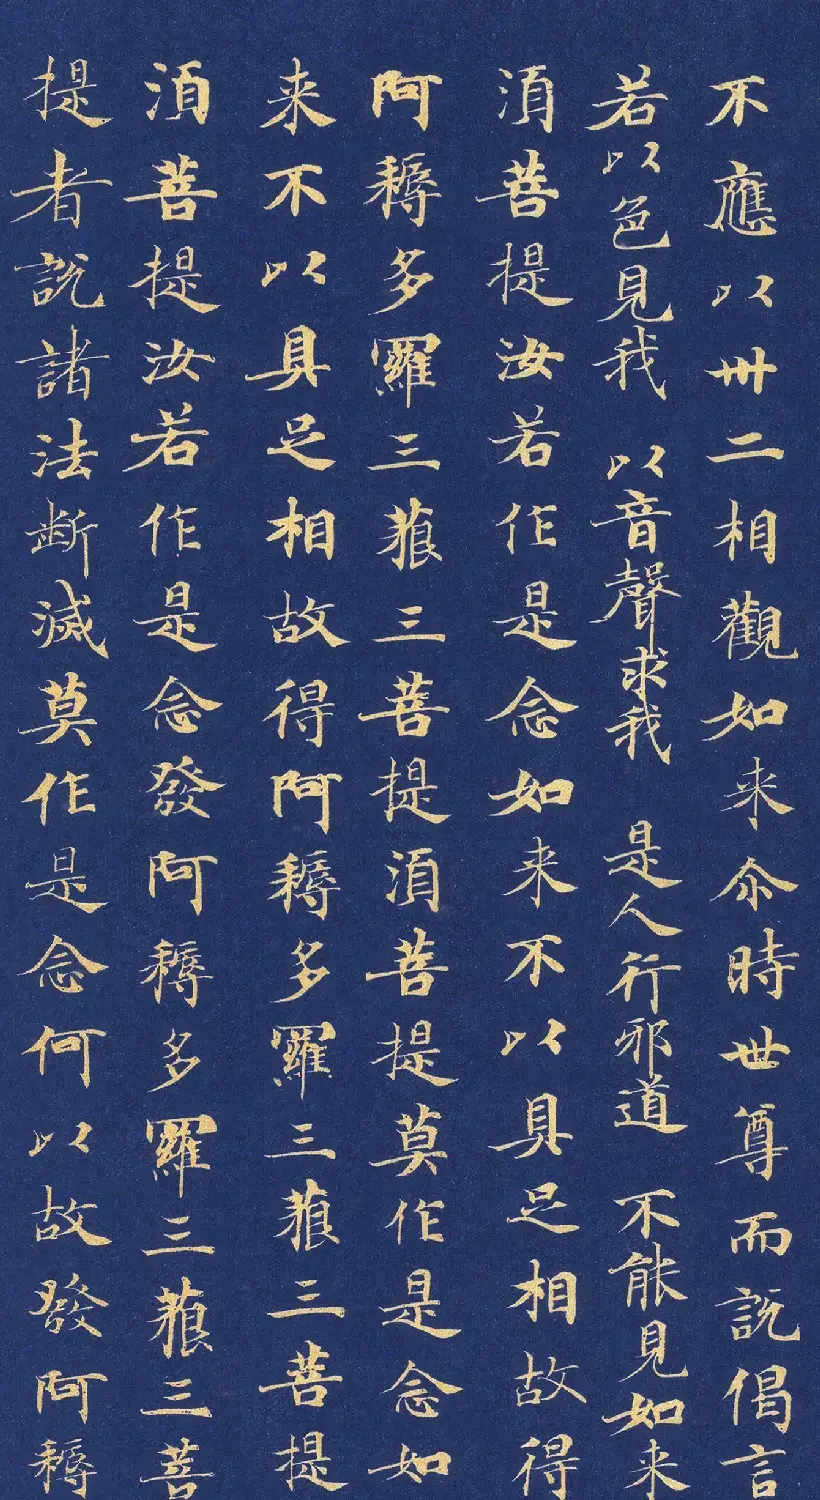 不應以卅二相觀如来尒時世尊而說偈言
若以色見我 以音聲求我 是人行邪道 不能見如来
湏菩提汝若作是念如来不以具足相故得
阿耨多羅三藐三菩提湏菩提莫作是念如
来不以具足相故得阿耨多羅三藐三菩提
湏菩提汝若作是念發阿耨多羅三藐三菩
提者說諸法断滅莫作是念何以故發阿耨